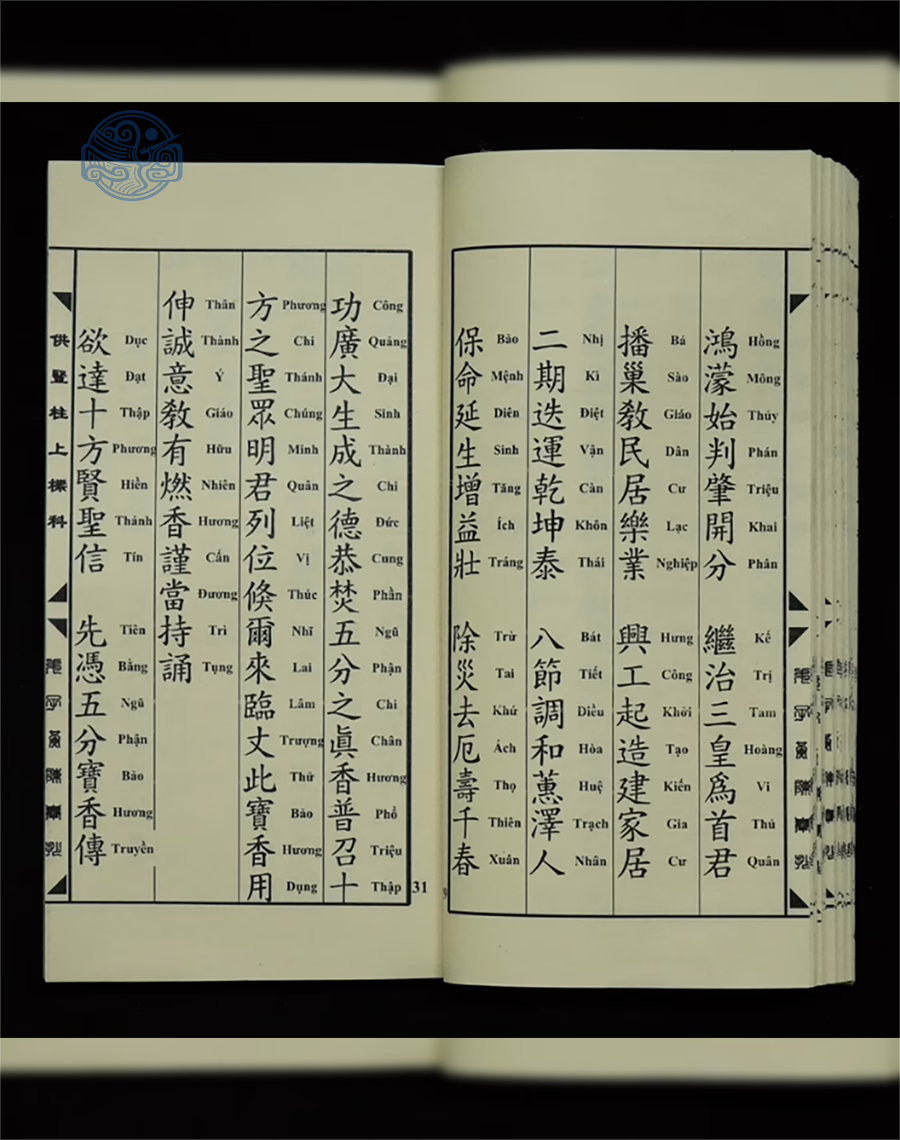 鴻濛始判肇開分 繼治三皇爲首君
Hồng Mông Thủy Phán Triệu Khai Phân Kế Trị Tam Hoàng Vi Thủ Quân
播巢教民居樂業 興工起造建家居
Bá Sào Giáo Dân Cư Lạc Nghiệp Hưng Công Khởi Tạo Kiến Gia Cư
二期迭運乾坤泰 八節調和蕙澤人
Nhị Kì Điệt Vận Càn Khôn Thái Bát Tiết Điều Hòa Huệ Trạch Nhân
保命延生增益壯 除災去厄壽千春
Bảo Mệnh Diên Sinh Tăng Ích Tráng Trừ Tai Khứ Ách Thọ Thiên Xuân
功廣大生成之德恭焚五分之眞香普召十
Công Quảng Đại Sinh Thành Chi Đức Cung Phần Ngũ Phận Chi Chân Hương Phổ Triệu Thập
方之聖眾明君列位倏爾來臨丈此寶香用
Phương Chi Thánh Chúng Minh Quân Liệt Vị Thúc Nhĩ Lai Lâm Trượng Thử Bảo Hương Dụng
伸誠意教有燃香謹當持誦
Thân Thành Ý Giáo Hữu Nhiên Hương Cẩn Đương Trì Tụng
欲達十方賢聖信 先憑五分寶香傳
Dục Đạt Thập Phương Hiền Thánh Tín Tiên Bằng Ngũ Phận Bảo Hương Truyền
供豎柱上樑科
31